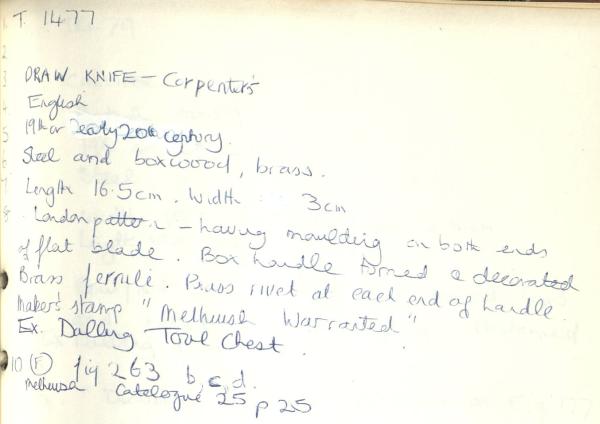 T. 1477
DRAW KNIFE - Carpenter's
English
19th or early 20th century.
Steel and boxwood, brass.
Length 16.5cm. Width 3cm
London pattern - having moulding on both ends
of flat blade. Box handle turned & decorated
Brass ferrule. Brass rivet at each end of handle.
Maker's stamp "Melhuish Warranted"
Ex. Dalling Tool Chest.
10 (F) fig 263 b, c, d.
Melhuish Catalogue 25 p 25